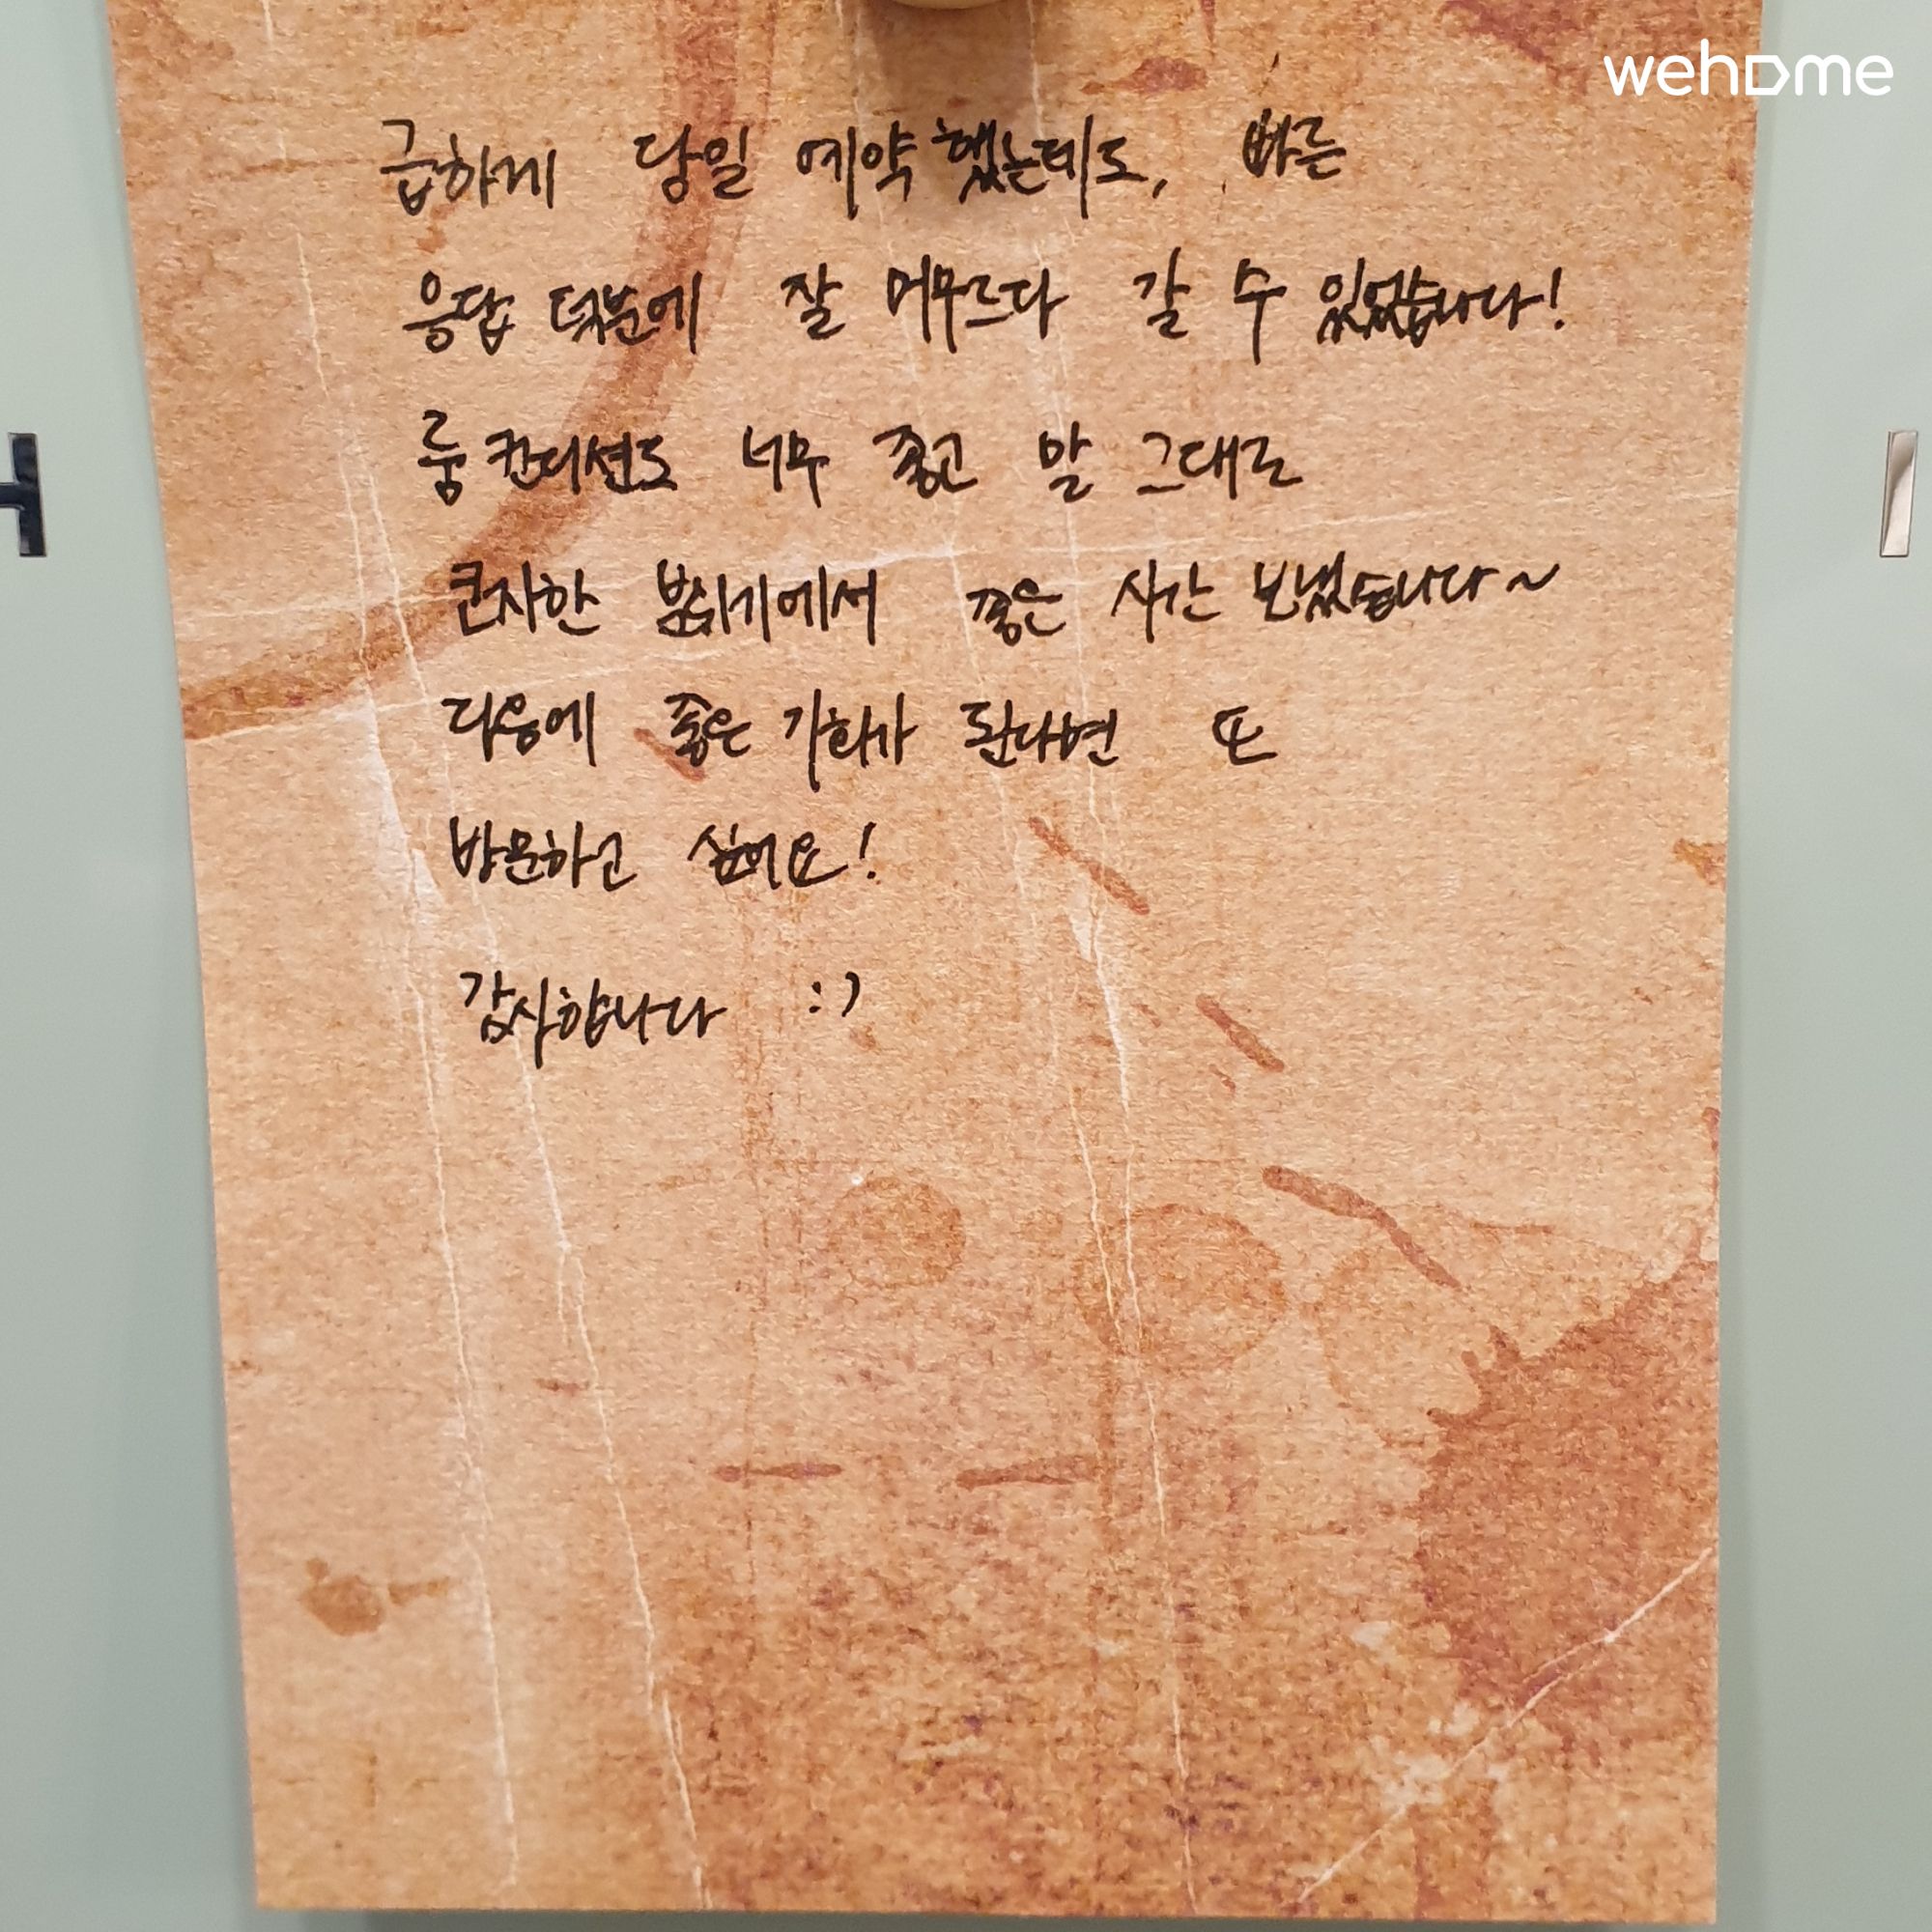 wehome
급하게 당일 예약했는데도, 빠른
응답 덕분에 잘 머무르다 갈 수 있었습니다!
룸 컨디션도 너무 좋고 말 그대로
큰자한 분위기에서 좋은 시간 보냈습니다~
다음에 좋은 기회가 된다면 또
방문하고 싶어요!
감사합니다 :)